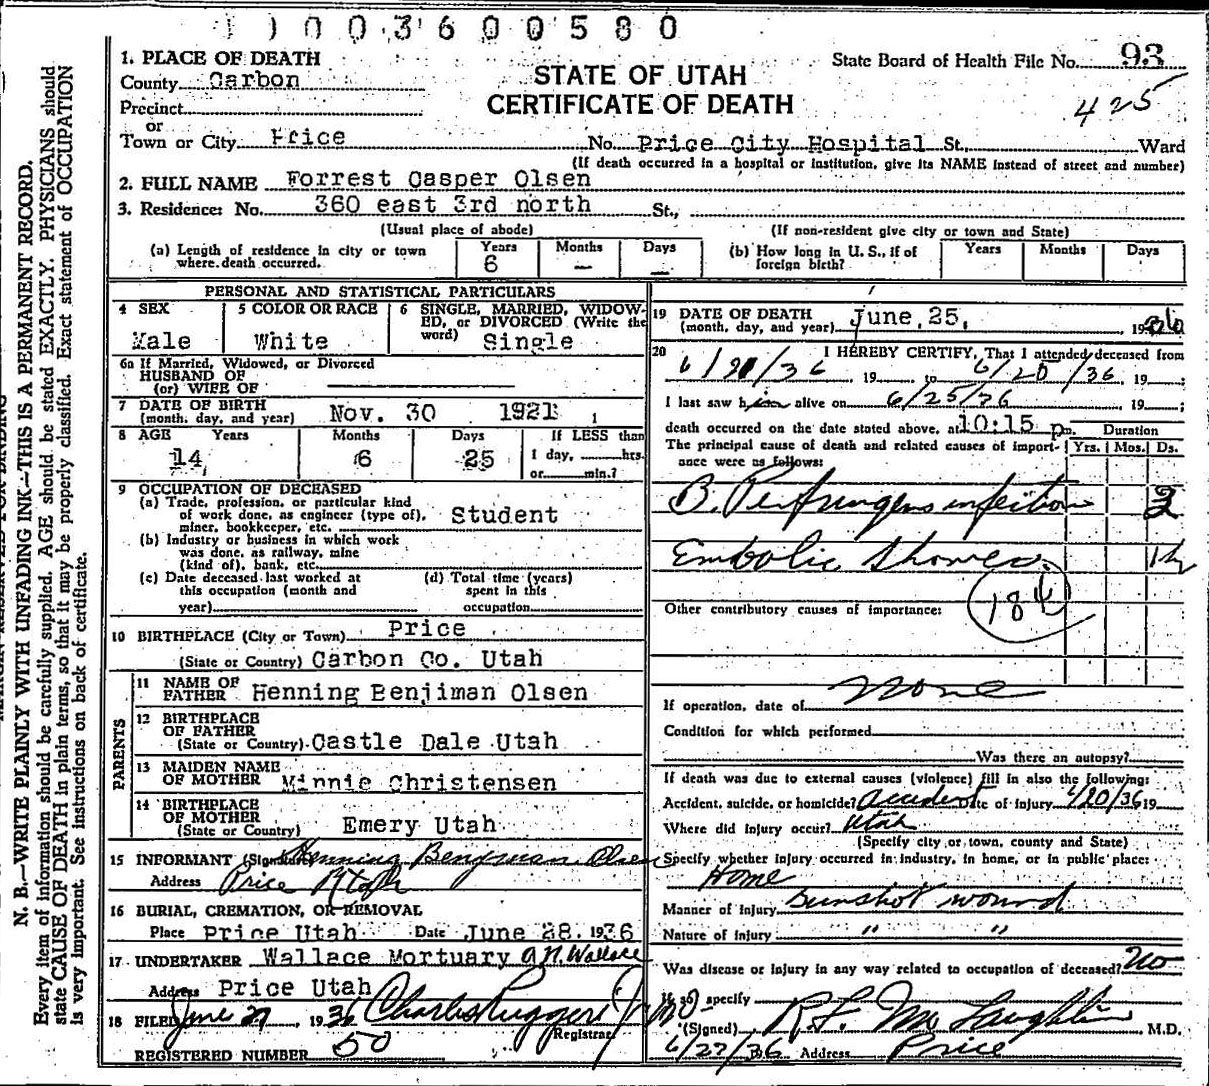 1003600580
1. PLACE OF DEATH
State Board of Health File No. 93
County Carbon
STATE OF UTAH
CERTIFICATE OF DEATH
425
Precinct
or
Town or City Price No. Price City Hospital St., Ward
(If death occurred in a hospital or institution, give its NAME instead of street and number)
2. FULL NAME Forrest Casper Olsen
3. Residence: No. 360 east 3rd north St.,
(Usual place of abode) (If non-resident give city or town and State)
(a) Length of residence in city or town where death occurred. Years 6 Months — Days —
(b) How long in U. S., if of foreign birth? Years Months Days
PERSONAL AND STATISTICAL PARTICULARS
4 SEX Male
5 COLOR OR RACE White
6 SINGLE, MARRIED, WIDOWED, or DIVORCED (Write the word) Single
6a If Married, Widowed, or Divorced
HUSBAND OF
(or) WIFE OF
7 DATE OF BIRTH
(month, day, and year) Nov. 30 1921
8 AGE Years 14 Months 6 Days 25 If LESS than
1 day, hrs.
or min.?
9 OCCUPATION OF DECEASED
(a) Trade, profession, or particular kind
of work done, as engineer (type of),
miner, bookkeeper, etc. Student
(b) Industry or business in which work
was done, as railway, mine
(kind of), bank, etc.
(c) Date deceased last worked at
this occupation (month and
year)
(d) Total time (years)
spent in this
occupation
10 BIRTHPLACE (City or Town) Price
(State or Country) Carbon Co. Utah
PARENTS
11 NAME OF
FATHER Henning Benjiman Olsen
12 BIRTHPLACE
OF FATHER
(State or Country) Castle Dale Utah
13 MAIDEN NAME
OF MOTHER Minnie Christensen
14 BIRTHPLACE
OF MOTHER
(State or Country) Emery Utah
15 INFORMANT (Signature) Henning Bengman Olsen
Address Price Utah
16 BURIAL, CREMATION, OR REMOVAL
Place Price Utah Date June 28, 1936
17 UNDERTAKER Wallace Mortuary A.N. Wallace
Address Price Utah
18 FILED June 27, 1936 Charles Ruggeri
Registrar
REGISTERED NUMBER 50
19 DATE OF DEATH
(month, day, and year) June, 25, 1936
20 I HEREBY CERTIFY, That I attended deceased from
6/20/36, 19 to 6/20/36, 19 ;
I last saw him alive on 6/25/36 19 ;
death occurred on the date stated above, at 10:15 p.m. Duration
The principal cause of death and related causes of importance were as follows: Yrs. Mos. Ds.
B. Perfringens infection 2
Embolic Shower
184
Other contributory causes of importance:
If operation, date of none
Condition for which performed
Was there an autopsy?
If death was due to external causes (violence) fill in also the following:
Accident, suicide, or homicide? Accident Date of injury 6/20/36 19
Where did injury occur? Utah
(Specify city or town, county and State)
Specify whether injury occurred in industry, in home, or in public place:
Home
Manner of injury Gunshot wound
Nature of injury " "
Was disease or injury in any way related to occupation of deceased? No
If so specify
(Signed) R. F. McLaughlin M.D.
6/27/36 Address Price
N. B.—WRITE PLAINLY WITH UNFADING INK—THIS IS A PERMANENT RECORD.
Every item of information should be carefully supplied. AGE should be stated EXACTLY. PHYSICIANS should
state CAUSE OF DEATH in plain terms, so that it may be properly classified. Exact statement of OCCUPATION
is very important. See instructions on back of certificate.